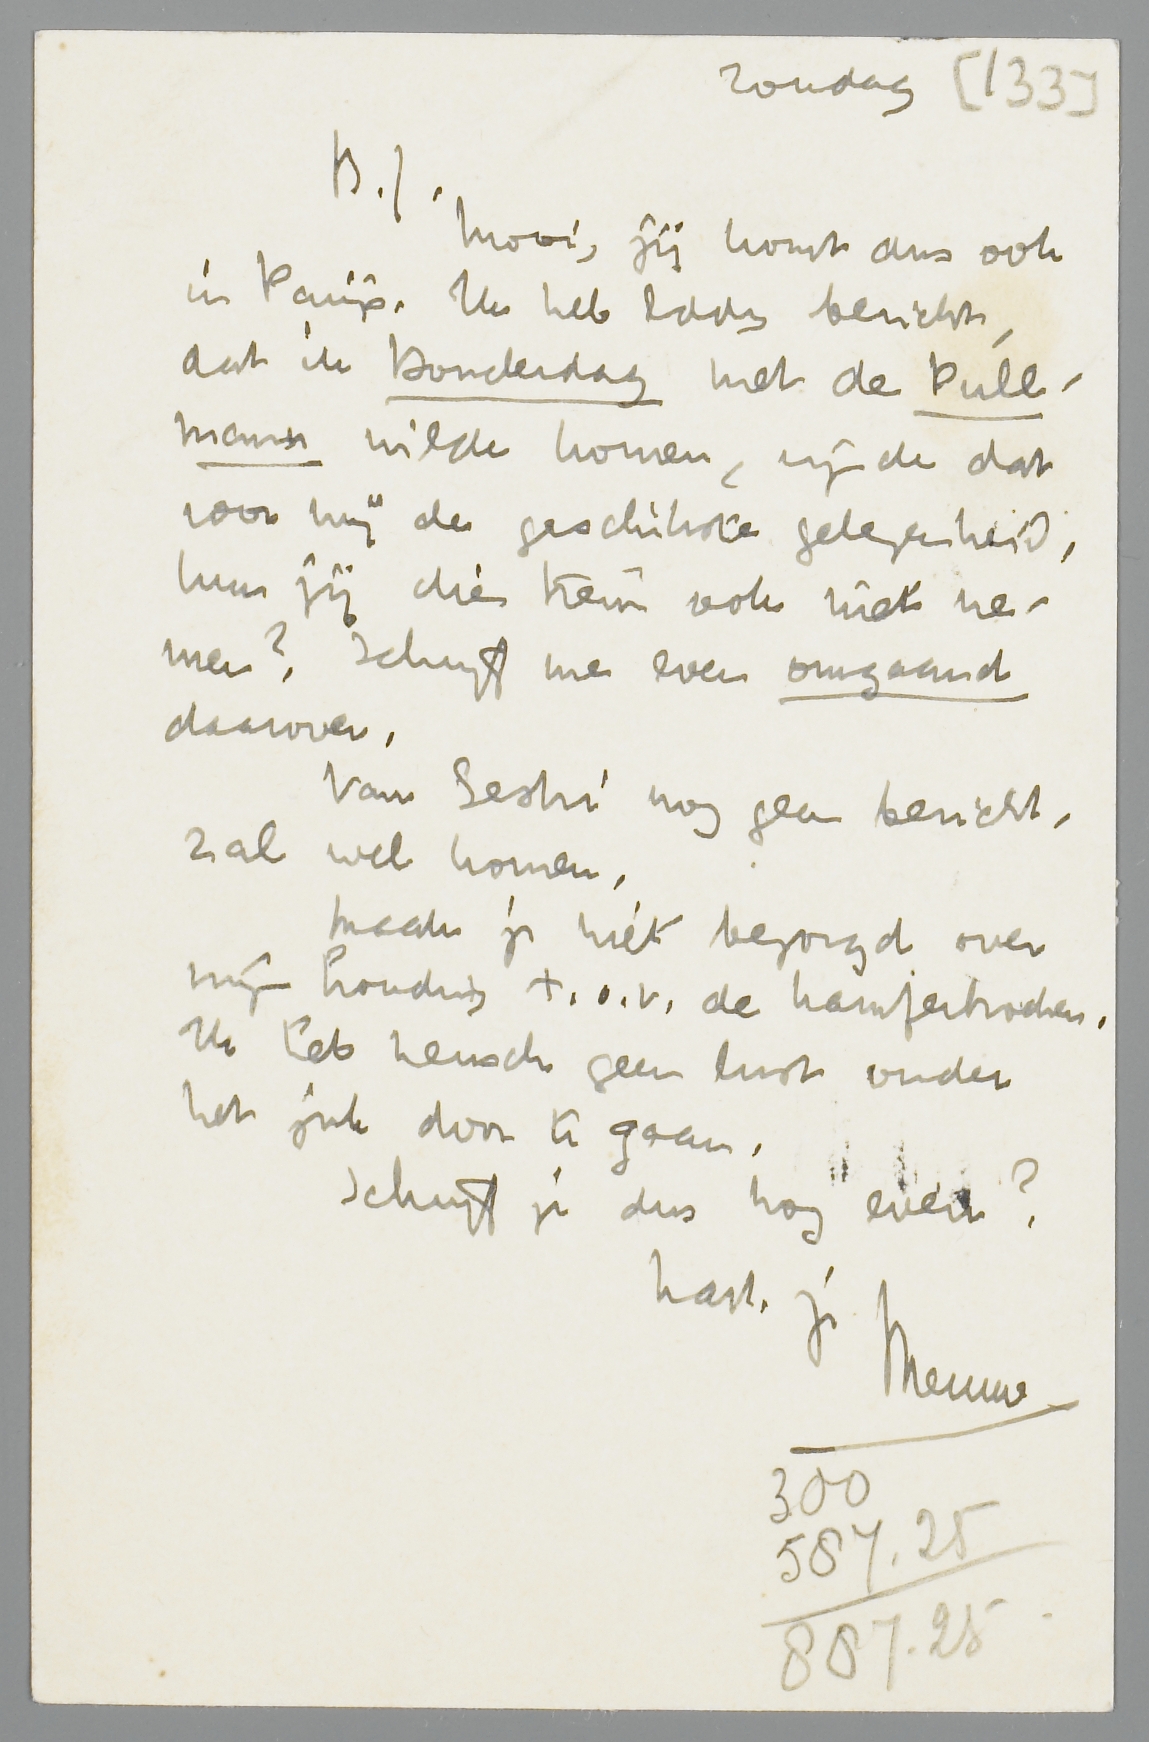 Zondag [133]
B.J.
Mooi, jij komt dus ook
in Parijs. Ik heb Eddy bericht,
dat ik Donderdag met de Pull-
mann wilde komen, zijnde dat
voor mij de geschikste gelegenheid,
kun jij dien trein ook niet ne-
men? Schrijf me even omgaand
daarover.
Van Sestri nog geen bericht,
zal wel komen.
Maak je niet bezorgd over
mijn houding t.o.v. de kamferbroden.
Ik heb heusch geen lust onder
het juk door te gaan.
Schrijf je dus nog even?
Hart. je
Menno
300
587.25
887.25